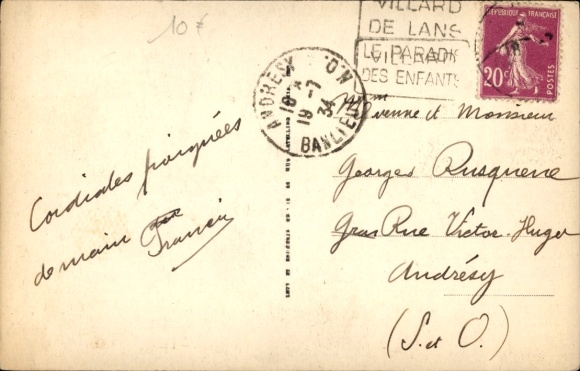 10 F
VILLARD
DE LANS
LE PARADIS
DES ENFANTS
RÉPUBLIQUE FRANÇAISE
20c
POSTES
ANDRESY
18 *
19 - 7
34
BANLIEUE
Cordiales poignées
de main
Mme Veuve et Monsieur
Georges Rusquene
Gras Rue Victor-Hugo
Andrésy
(S. et O.)